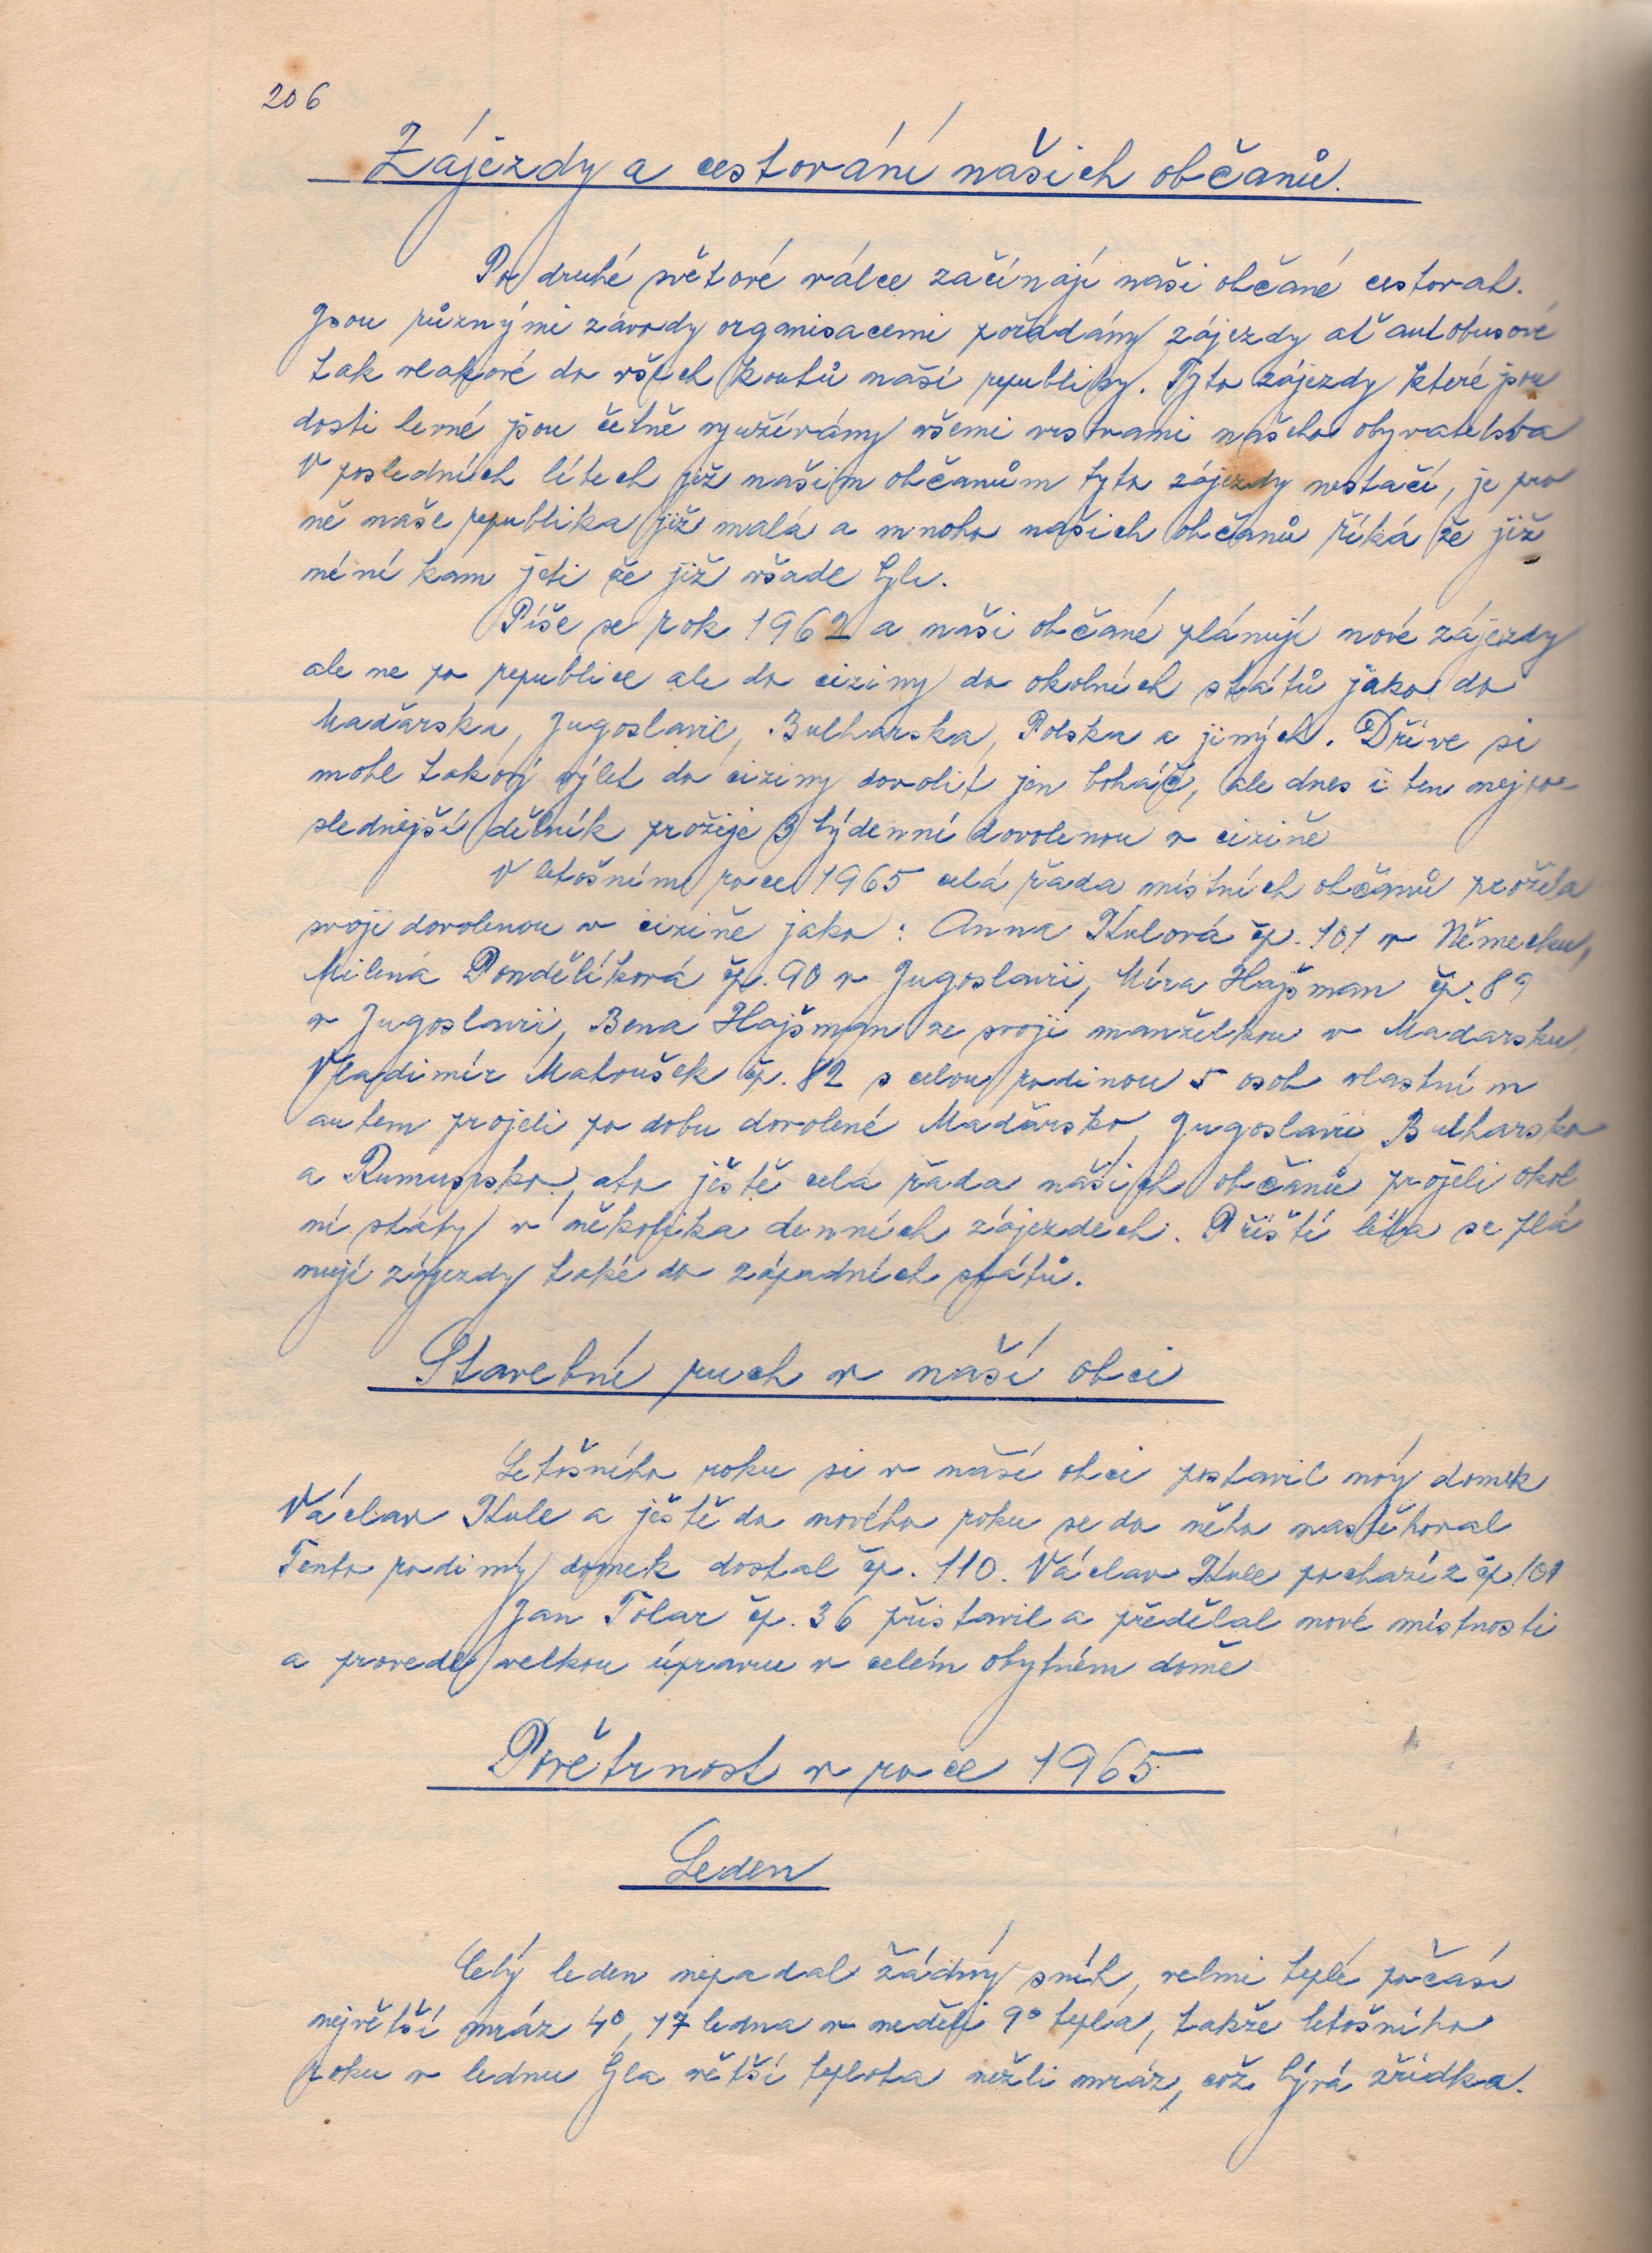 206
Zájezdy a cestování našich občanů.
Po druhé světové válce začínají naši občané cestovat.
Jsou různými závody organisacemi pořádány zájezdy ať autobusové
tak vlakové do všech koutů naší republiky. Tyto zájezdy které jsou
dosti levné jsou četně využívány všemi vrstvami našeho obyvatelstva
V posledních létech již našim občanům tyto zájezdy nestačí, je pro
ně naše republika již malá a mnoho našich občanů říká že již
néní kam jeti že již všade byli.
Píše se rok 1962 a naši občané plánují nové zájezdy
ale ne po republice ale do ciziny do okolních států jako do
Maďarska, Jugoslavie, Bulharska, Polska a jiných. Dříve si
mohl takový výlet do ciziny dovolit jen boháč, ale dnes i ten nejpo-
slednější dělník prožije 3 týdenní dovolenou v cizině
V letošním roce 1965 celá řada místních občanů prožila
svoji dovolenou v cizině jako: Anna Kulová čp. 101 v Německu,
Milena Pondělíková čp. 90 v Jugoslavii, Míra Hajšman čp. 89
v Jugoslavii, Bena Hajšman ze svojí manželkou v Madarsku,
Vladimír Matoušek čp. 82 s celou rodinou 5 osob vlastním
autem projeli po dobu dovolené Maďarsko, Jugoslavii, Bulharsko
a Rumunsko, ato ještě celá řada našich občanů projeli okol
ní státy v několika denních zájezdech. Příští léta se plá
nují zájezdy také do západních států.
Stavební ruch v naší obci
Letošního roku si v naší obci postavil nový domek
Václav Kule a ještě do nového roku se do něho nastěhoval
Tento rodinný domek dostal čp. 110. Václav Kule pochází z čp 101
Jan Tolar čp. 36 přistavil a předělal nové místnosti
a provedl velkou úpravu v celém obytném domě
Povětrnost v roce 1965
Leden
Celý leden nepadal žádný sníh, velmi teplé počásí
největší mráz 4°, 17 ledna v neděli 9° tepla, takže letošního
roku v lednu byla větší teplota nežli mráz, což bývá zřídka.